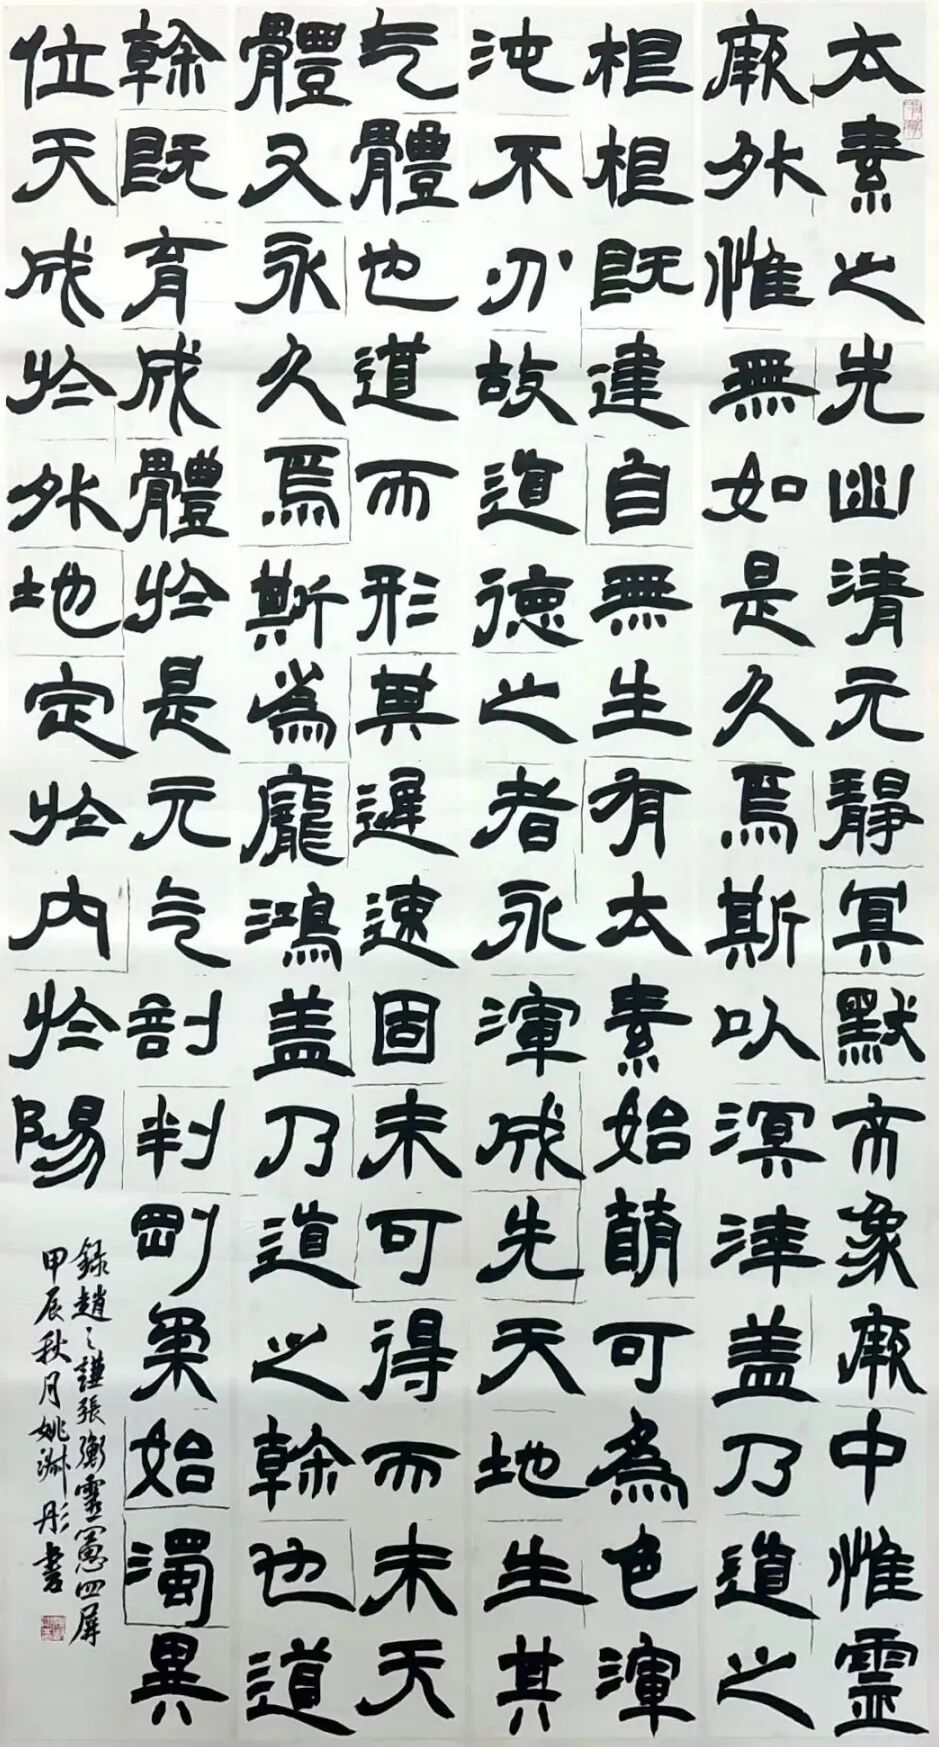 太素之先幽清元靜冥默帀象厥中惟靈
厥外惟無如是久焉斯以溟涬盖乃道之
根根既建自無生有太素始萌可為色渾
沌不分故道德之者永渾成先天地生其
气體也道而形其遲速固未可得而未天
體又永久焉斯為龐鴻盖乃道之榦也道
榦既育成體於是元气剖判剛柔始濁異
位天成於外地定於內於陽
錄趙之謙張衡靈憲四屏
甲辰秋月姚淋彤書